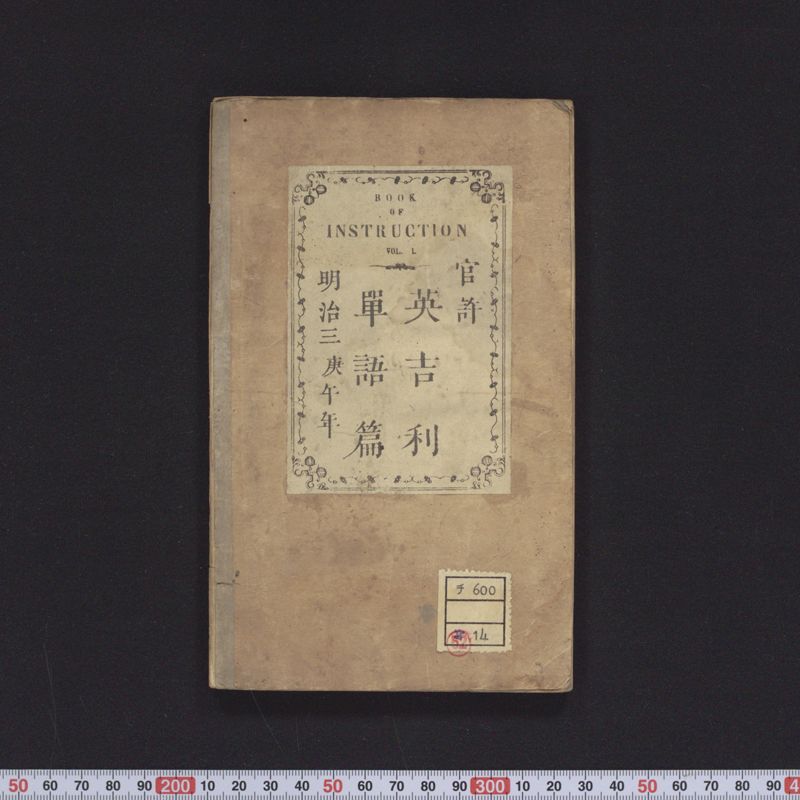 BOOK
OF
INSTRUCTION
VOL. I.
官許
英吉利
單語篇
明治三庚午年
チ 600
14
52
50 60 70 80 90 200 10 20 30 40 50 60 70 80 90 300 10 20 30 40 50 60 70 80 90 4